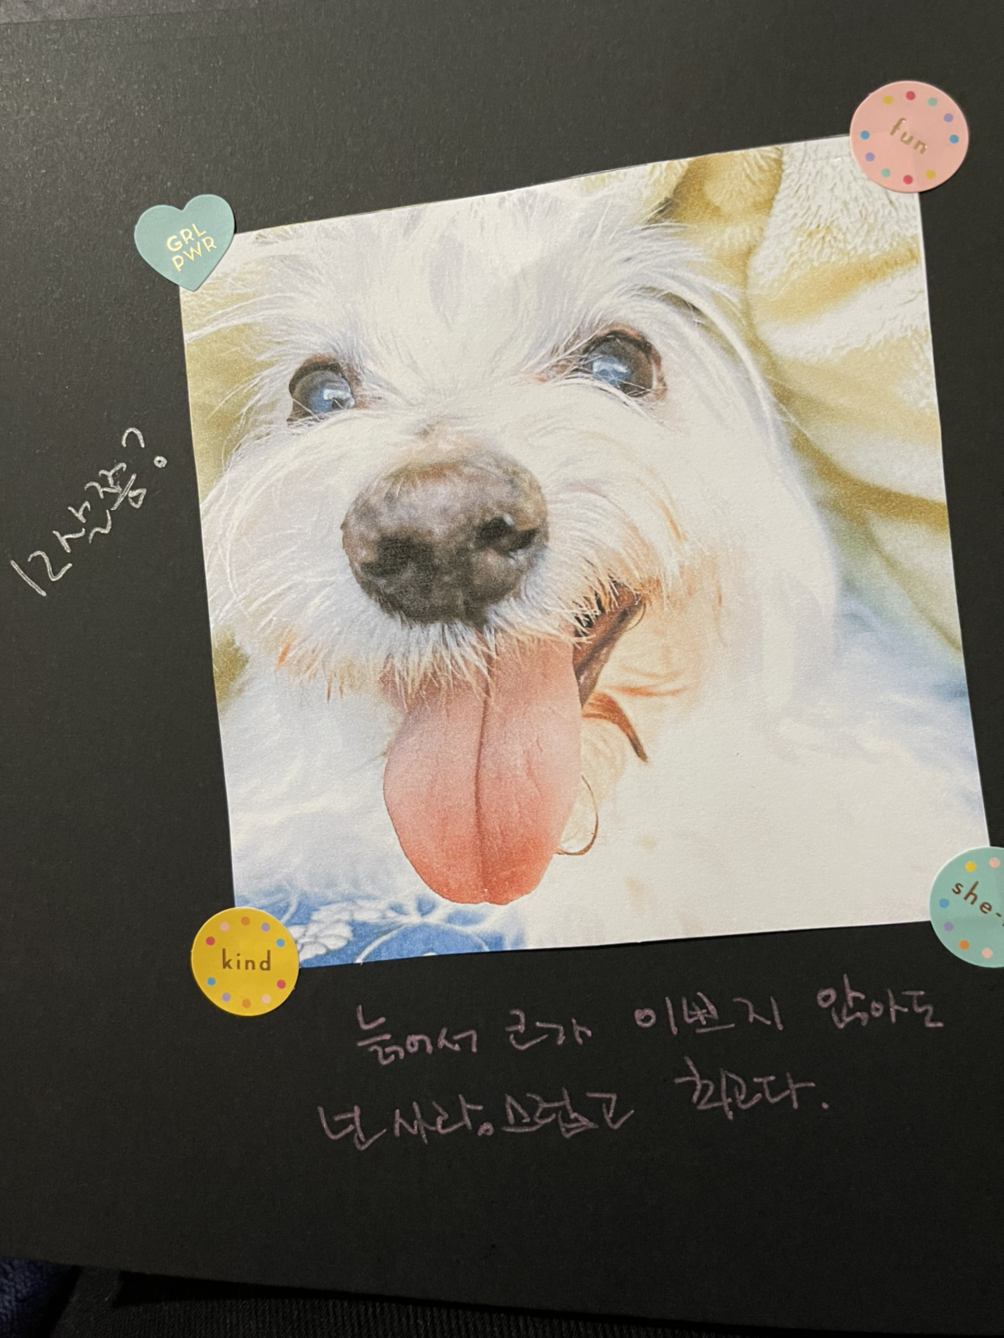 fun
GRL
PWR
12살쯤?
kind
she-
늙어서 코가 이쁘지 않아도
넌 사랑스럽고 최고다.